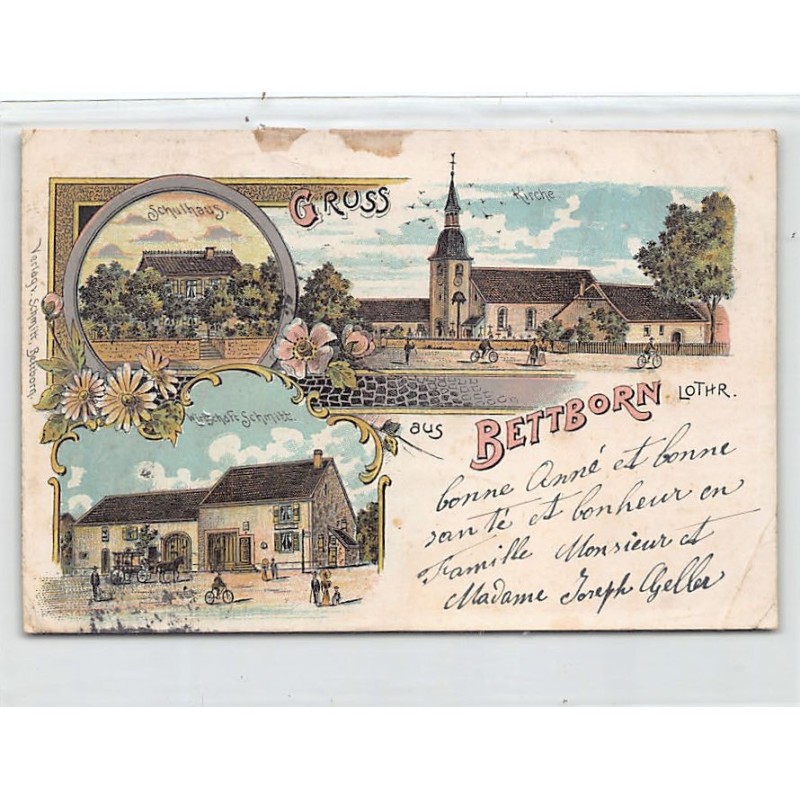 Schulhaus.
GRUSS
Kirche
Verlag v. Schmitt, Bettborn
Wirtschaft Schmitt.
aus
BETTBORN LOTHR.
bonne Anné et bonne
santé et bonheur en
Famille Monsieur et
Madame Joseph